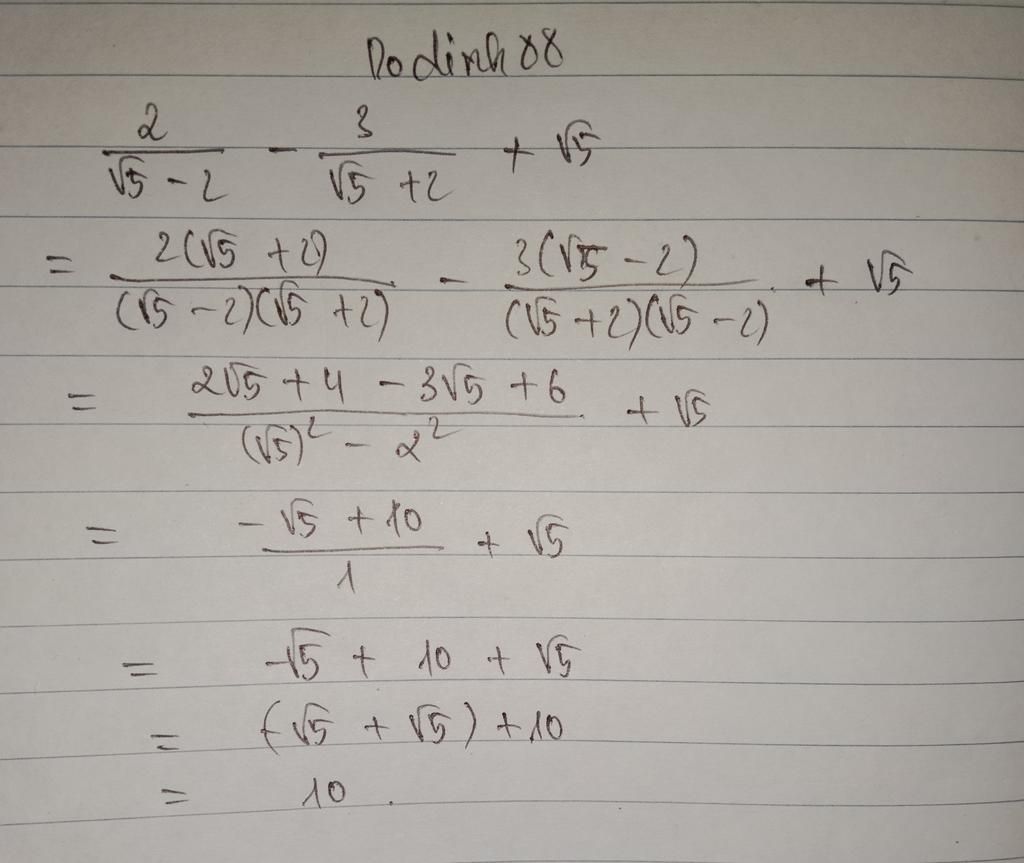 Dodinh88
2/(√5 - 2) - 3/(√5 + 2) + √5
= 2(√5 + 2)/((√5 - 2)(√5 + 2)) - 3(√5 - 2)/((√5 + 2)(√5 - 2)) + √5
= (2√5 + 4 - 3√5 + 6)/((√5)² - 2²) + √5
= (-√5 + 10)/1 + √5
= -√5 + 10 + √5
= (-√5 + √5) + 10
= 10.